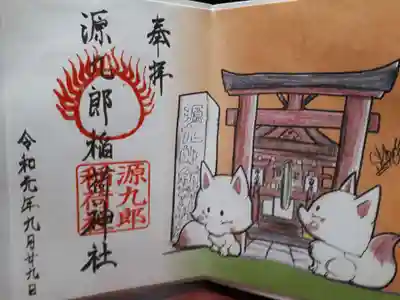 奉拝
源九郎稲荷神社
源九郎
稲荷
令和元年九月廿九日
源九郎稲荷